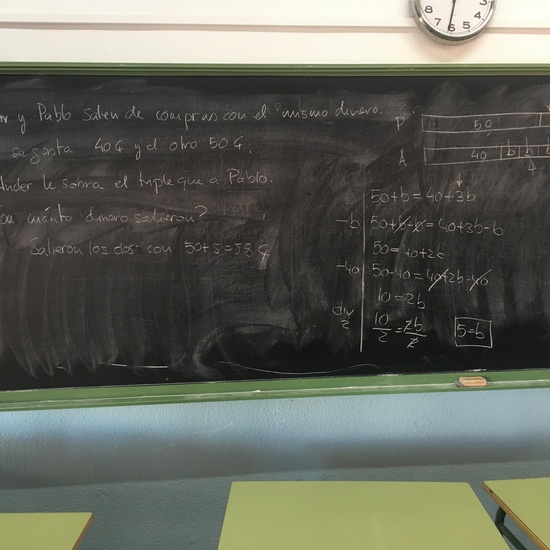 y Pablo salen de compras con el mismo dinero.
se gasta 40€ y el otro 50€,
Ander le sobra el triple que a Pablo.
cuánto dinero salieron?
Salieron los dos con 50+5=55€
P 50
A 40 b b b
50+b=40+3b
-b 50+b-b=40+3b-b
50=40+2b
-40 50-40=40+2b-40
10=2b
div 2 10/2=2b/2 5=b